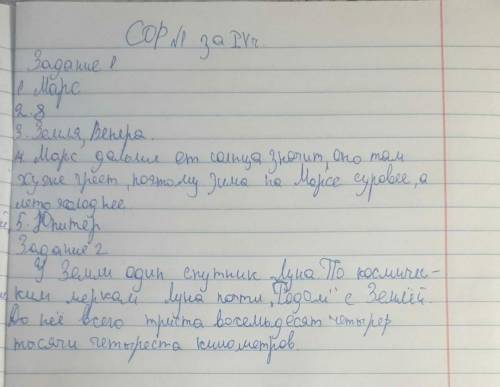 СОР №1 за IVч.
Задание 1
1 Марс
2. 8
3. Земля, Венера.
4 Марс дальше от солнца значит, оно там
хуже греет, поэтому зима на Марсе суровее, а
лето холоднее
5. Юпитер
Задание 2
У Земли один спутник Луна. По космичес-
ким меркам Луна почти „Рядом" с Землёй.
До неё всего триста восемьдесят четырер
тысячи четыреста километров.